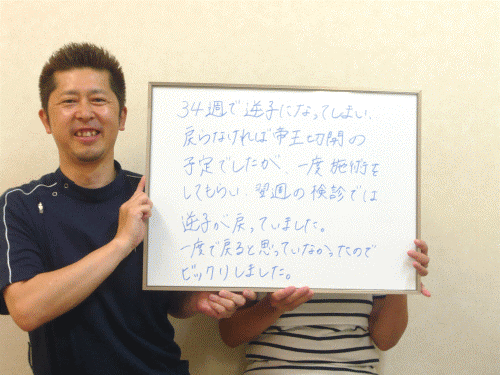 34週で逆子になってしまい、
戻らなければ帝王切開の
予定でしたが、一度施術を
してもらい、翌週の検診では
逆子が戻っていました。
一度で戻ると思っていなかったので
ビックリしました。